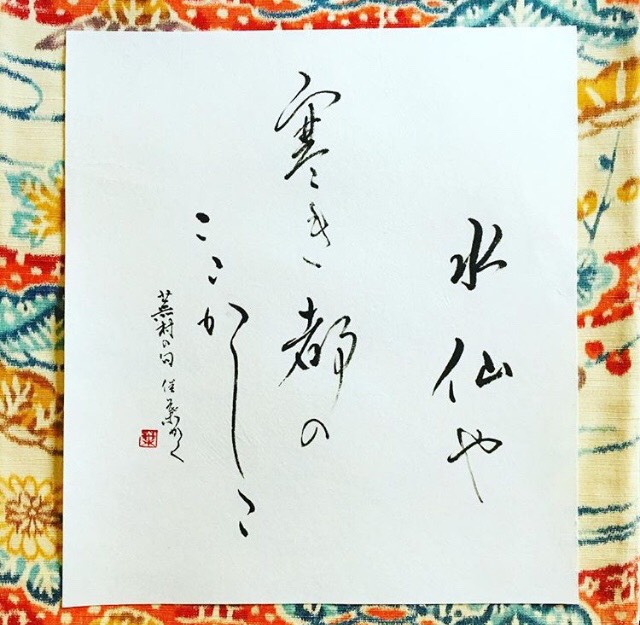 水仙や
寒き都の
ここかしこ
蕪村の句 佳葉かく